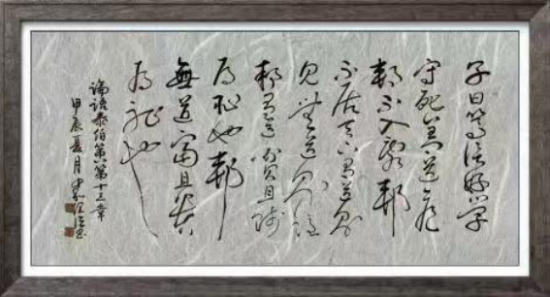 子曰笃信好学
守死善道危
邦不入乱邦
不居天下有道则
见无道则隐
邦有道贫且贱
焉耻也邦
無道富且贵
焉耻也
论语泰伯篇第十三章
甲辰夏月